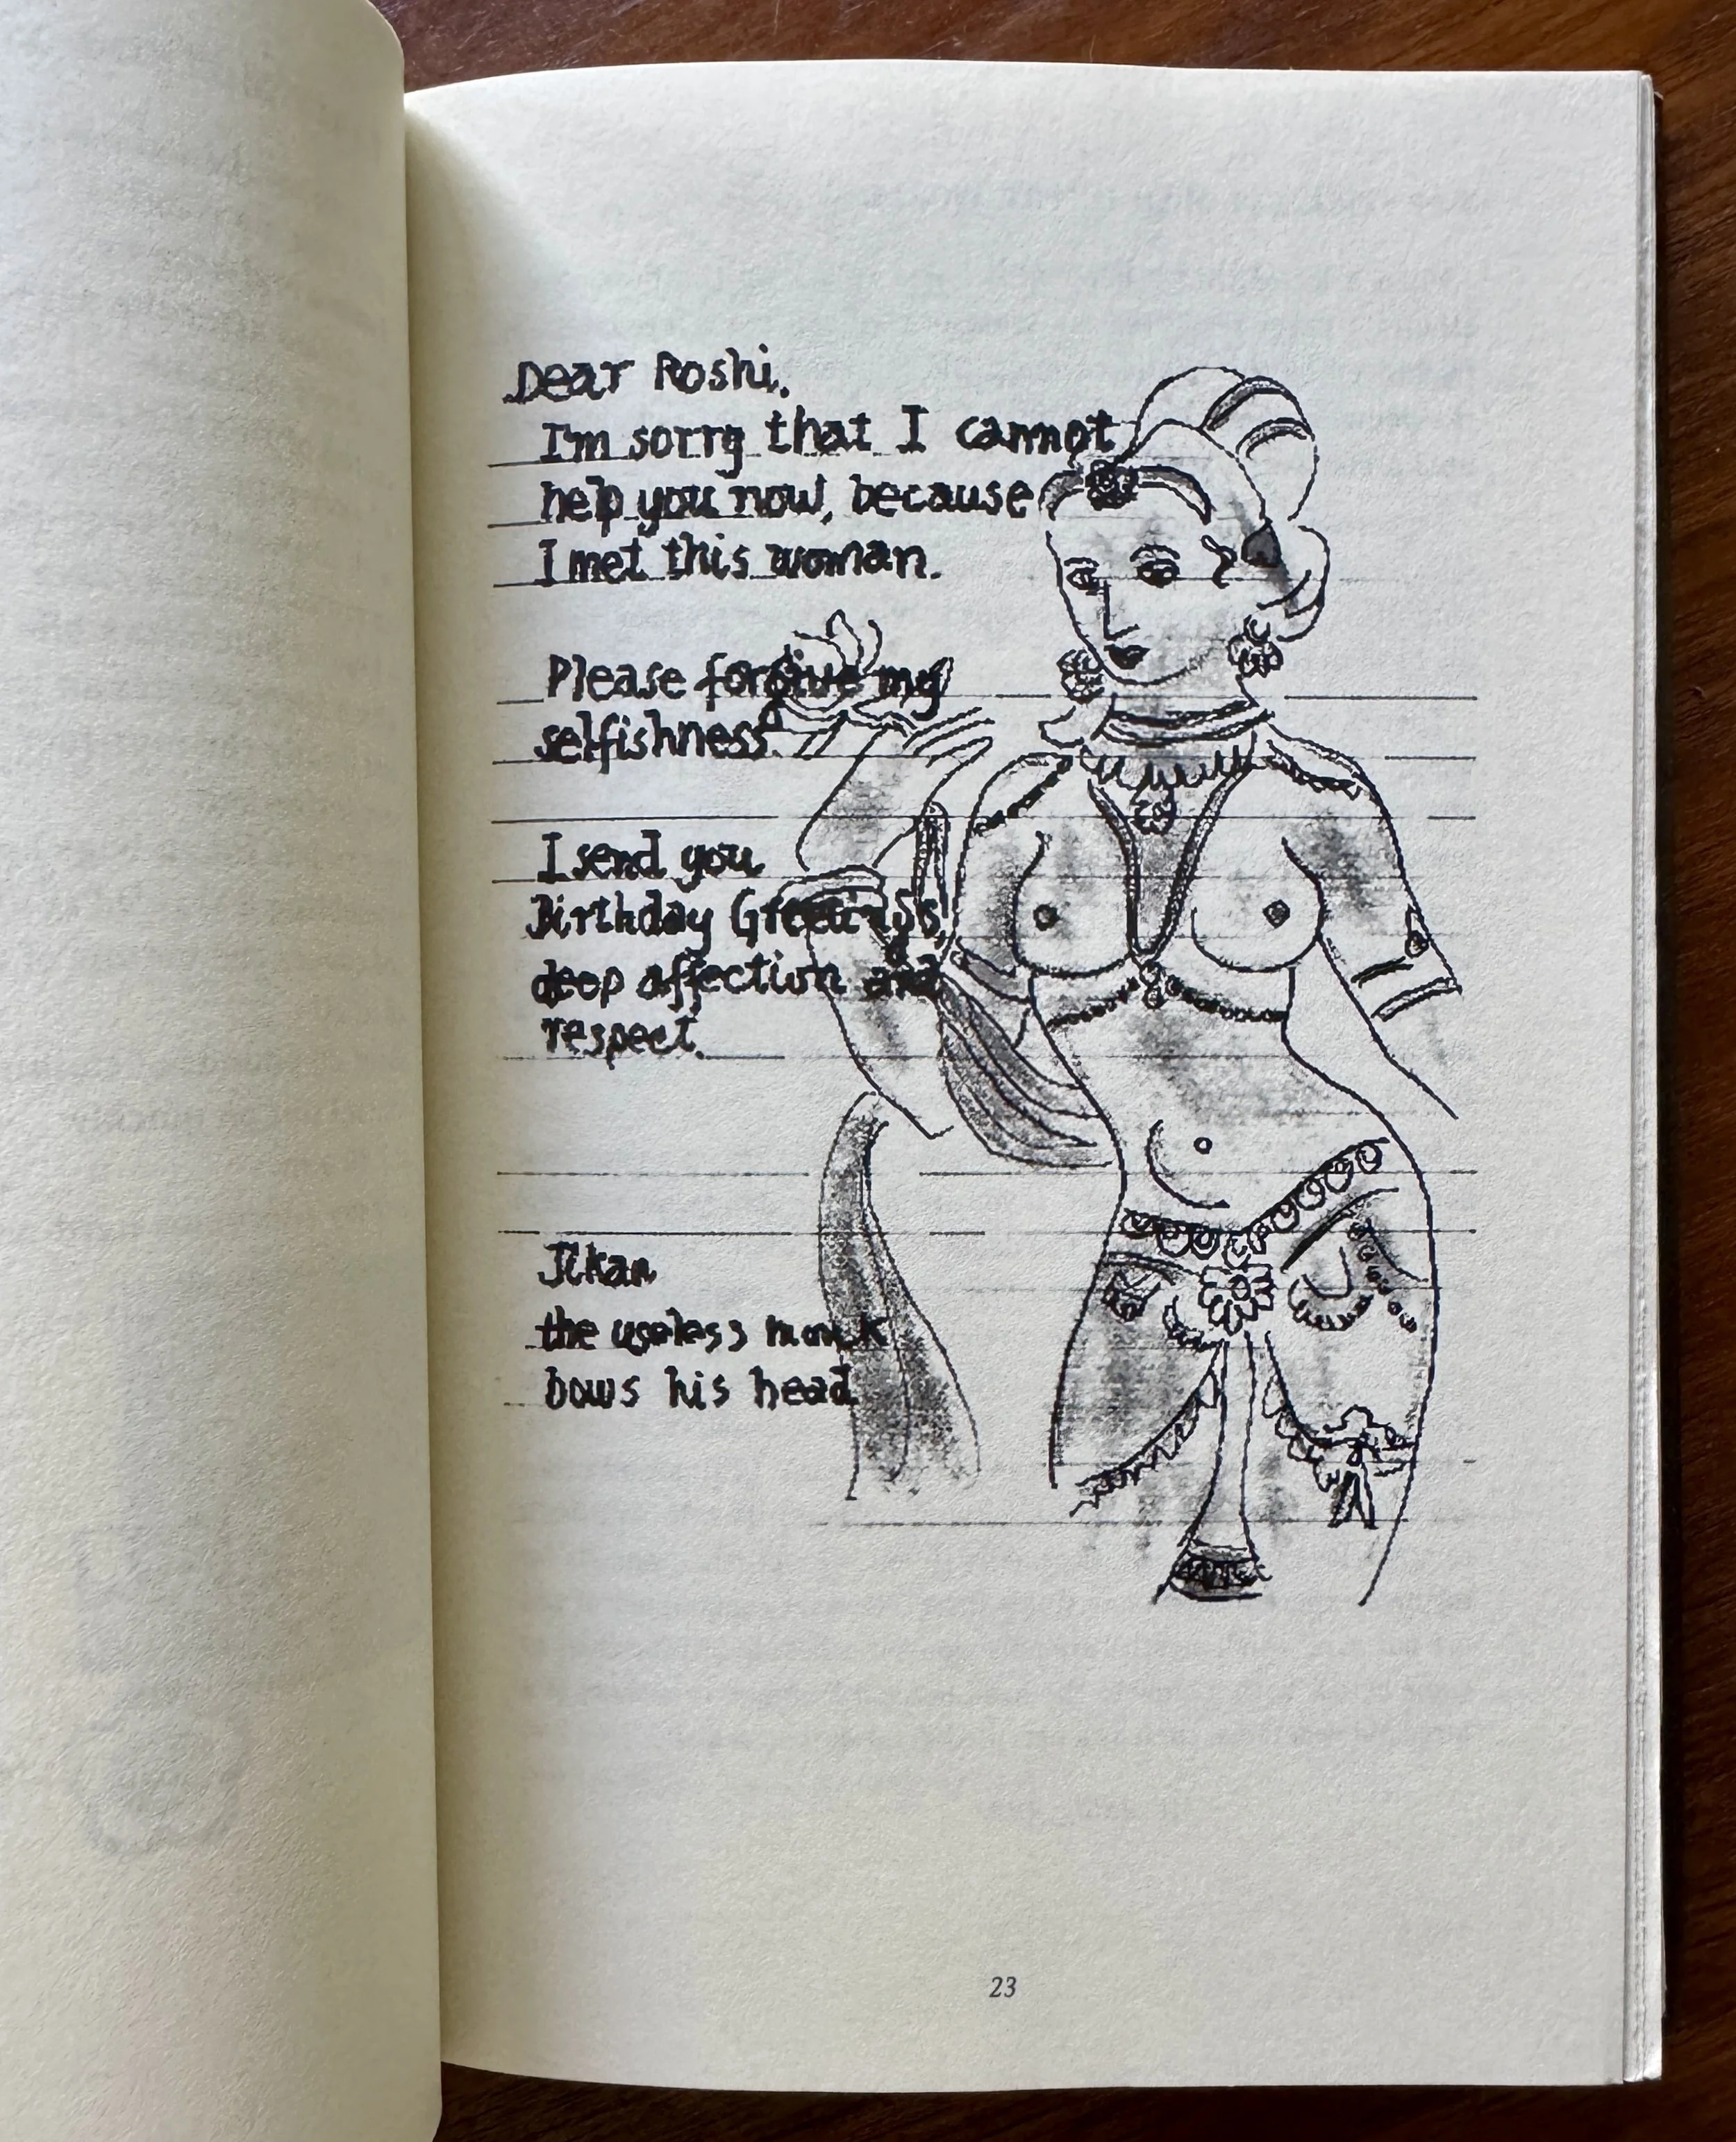 Dear Roshi,
I'm sorry that I cannot
help you now, because
I met this woman.
Please forgive my
selfishness.
I send you
Birthday Greetings,
deep affection and
respect.
Jikan
the useless monk
bows his head
23